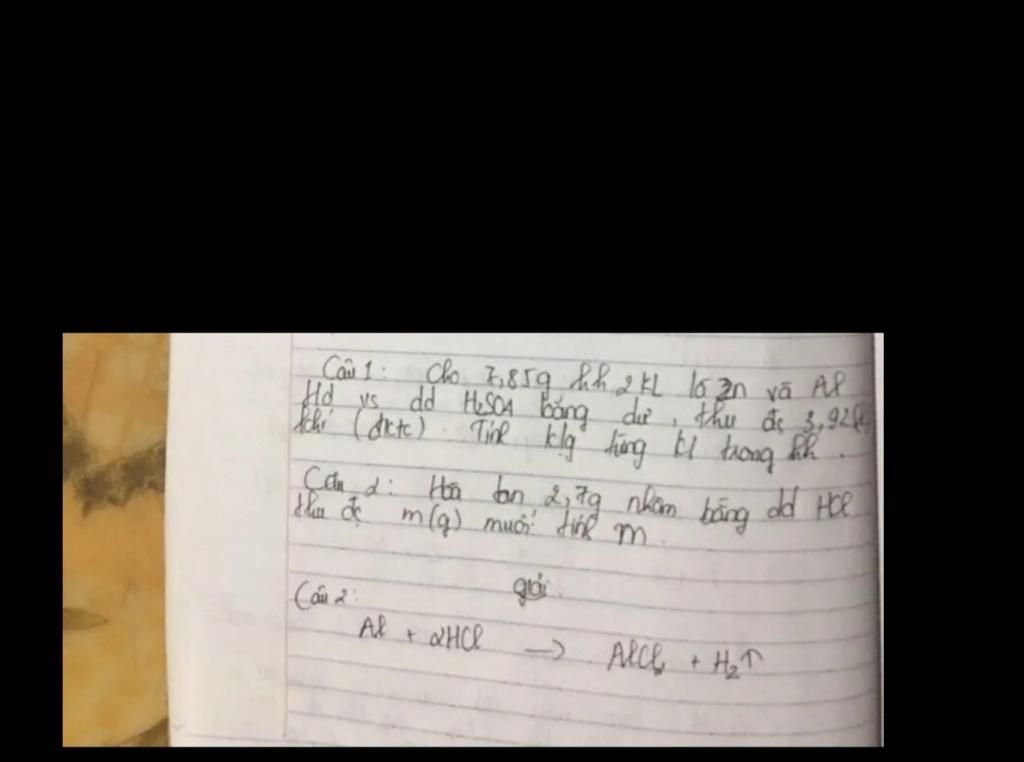 Câu 1: Cho 7,85g hh 2 KL là Zn và Al
td vs dd H₂SO4 băng dư, thu đc 3,92(l)
khí (đktc). Tính klg từng kl trong hh.
Câu 2: Hòa tan 2,7g nhôm bằng dd HCl
thu đc m(g) muối tính m
giải.
Câu 2:
Al + 2HCl → AlCl + H₂↑